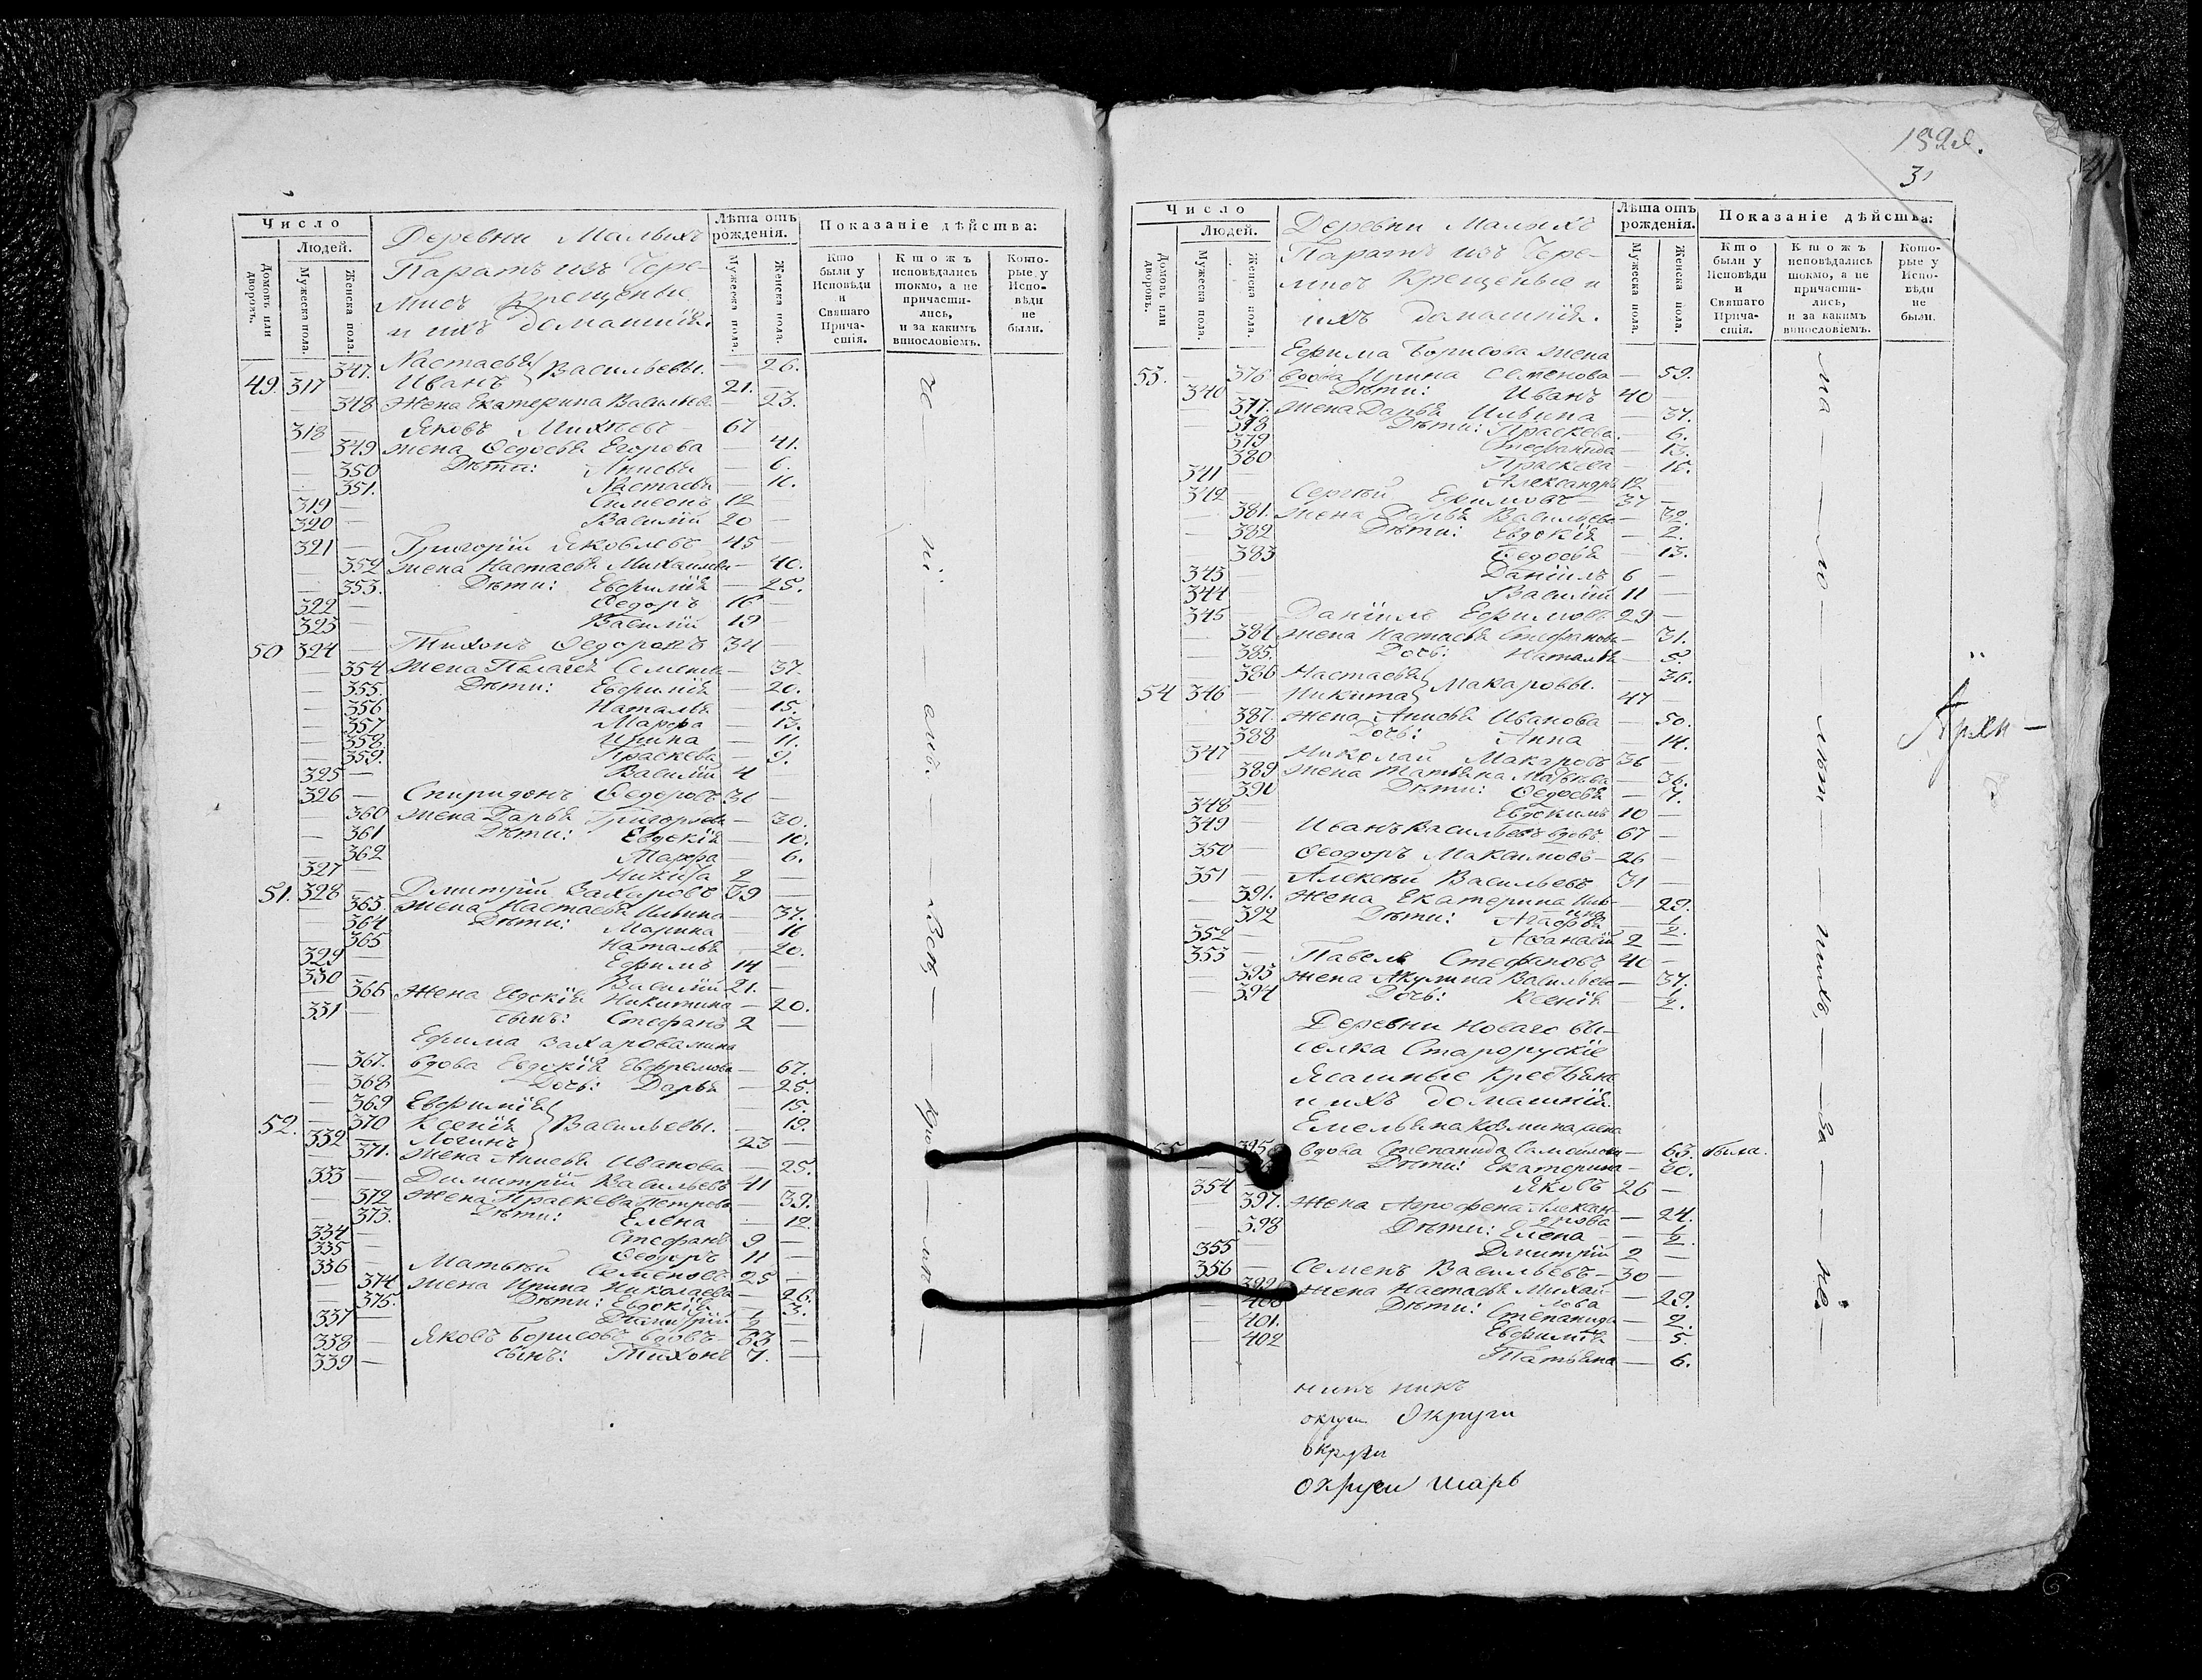 Число
Людей.
Домовъ или дворовъ.
Мужеска пола.
Женска пола.
Деревни Малыхъ
Паратъ изъ Чере-
мисъ Крещеныи
и ихъ домашнія.
Лѣта отъ рожденія.
Мужеска пола.
Женска пола.
Показаніе дѣйства:
Кто были у Исповѣди и Святаго Прича-стія.
Ктожъ исповѣдались токмо, а не причасти-лись, и за какимъ винословіемъ.
Кото-рые у Испо-вѣди не были.
— 347. Настасья } Васильевы. — 26.
49. 317 Иванъ 21. —
— 348 Жена Екатерина Васильева — 23.
318 — Яковъ Михѣевъ 67
— 349 Жена Ѳедосья Егорова — 41.
— 350 Дѣти: Анисья — 6.
— 351. Настасья —
319 — Симеонъ 12
320 — Василій 20 —
321 — Григорій Яковлевъ 45 —
352 Жена Настасья Михайлова — 40.
— 353. Дѣти: Евфимія — 25.
322 — Ѳедоръ 16 —
323 — Василій 19 —
50 324 — Тихонъ Ѳедоровъ 34 —
— 354 Жена Пелагея Семенова — 37.
— 355. Дѣти: Евфимія — 20.
— 356 Наталья 15.
— 357 Марфа — 13.
— 358 Ирина — 11.
— 359. Праскева — 9.
325 — Василій 4 —
326 — Спиридонъ Ѳедоровъ 36 —
— 360 Жена Дарья Григорьева — 30.
— 361 Дѣти: Евдокія — 10.
— 362 Марфа — 6.
327 — Никита 2 —
51. 328 — Дмитрій Захаровъ 39 —
— 363. Жена Настасья Ильина — 37.
— 364 Дѣти: Марина — 16
— 365 Наталья — 20.
329 — Ефимъ 14 —
330 — Василій 21. —
— 366 Жена Евдокія Никитина — 20.
331 — сынъ: Стефанъ 2 —
Ефима Захарова жена
— 367. вдова Евдокія Евфремова — 67.
— 368 Дочь: Дарья — 25.
— 369 Евфимія } — 15.
52. — 370 Ксенія } Васильевы. — 19.
332 — Логинъ } 23 —
— 371. Жена Анисья Иванова — 25.
333 — Димитрій Васильевъ 41 —
— 372 Жена Праскева Петрова — 39.
— 373. Дѣти: Елена — 12.
334 — Стефанъ 9 —
335 — Ѳеодоръ 11 —
336 — Матвѣй Семеновъ 25 —
— 374 Жена Ирина Николаева — 26.
— 375. Дѣти: Евдокія — 3.
337 — Димитрій ½
338 — Яковъ Борисовъ вдовъ — 63 —
339 — сынъ: Тихонъ 7. —
1828.
31
Число
Людей.
Домовъ или дворовъ.
Мужеска пола.
Женска пола.
Деревни Малыхъ
Паратъ изъ Чере-
мисъ Крещеные и
ихъ домашнія.
Лѣта отъ рожденія.
Мужеска пола.
Женска пола.
Показаніе дѣйства:
Кто были у Исповѣди и Святаго Прича-стія.
Ктожъ исповѣдались токмо, а не причасти-лись, и за какимъ винословіемъ.
Кото-рые у Испо-вѣди не были.
Ефима Борисова жена
53. — 376 вдова Ирина Семенова — 59.
340 Дѣти: Иванъ 40 —
— 377. Жена Дарья Ильина — 37.
— 378 Дѣти: Праскева. — 6.
379 Стефанида — 13.
380 Праскева —
341 — Александръ 12
342 Сергѣй Ефимовъ 37 —
— 381. Жена Дарья Васильева — 39.
— 382 Дѣти: Евдокія — 2.
— 383 Ѳедосья — 13.
343 — Даніилъ 6 —
344 — Василій 11 —
345 — Даніилъ Ефимовъ 29 —
— 384 Жена Настасья Стефанова — 31.
— 385. Дочь: Наталья — 5.
— 386 Настасья } Макаровы. — 36.
54 346 — Никита } 47 —
— 387. Жена Анисья Иванова — 50.
— 388 Дочь: Анна — 14.
347 Николай Макаровъ 36 —
— 389 Жена Татьяна Матвѣева — 36.
— 390 Дѣти: Ѳедосья — 7.
348 — Евдокимъ 10 —
349 — Иванъ Васильевъ вдовъ 67 —
350 — Ѳеодоръ Максимовъ — 26 —
351 — Алексѣй Васильевъ 31 —
— 391. Жена Екатерина Иль-ина — 29.
— 392 Дѣти: Агафья — ½.
352 — Аѳанасій 2 —
353 — Павелъ Стефановъ 40 —
— 393 Жена Акулина Васильева — 37.
— 394 Дочь: Ксенія — ½.
Деревни Новаго вы-
селка Старорускіе
Ясашные крестьяне
и ихъ домашнія.
Емельяна Козмина жена
55 395 вдова Степанида Самойлова — 63. была.
Дѣти: Екатерина — 20.
354 Яковъ 26 —
— 397. Жена Агрофена Алексан-дрова — 24.
— 398 Дѣти: Елена — ½.
355 — Дмитрій 2 —
356 — Семенъ Васильевъ — 30 —
399 Жена Настасья Михай-лова — 29.
— 400 Дѣти: Степанида — 2.
— 401. Евфимія — 5.
— 402 Татьяна — 6.
Архи —
округи Округи
округи
округи царь